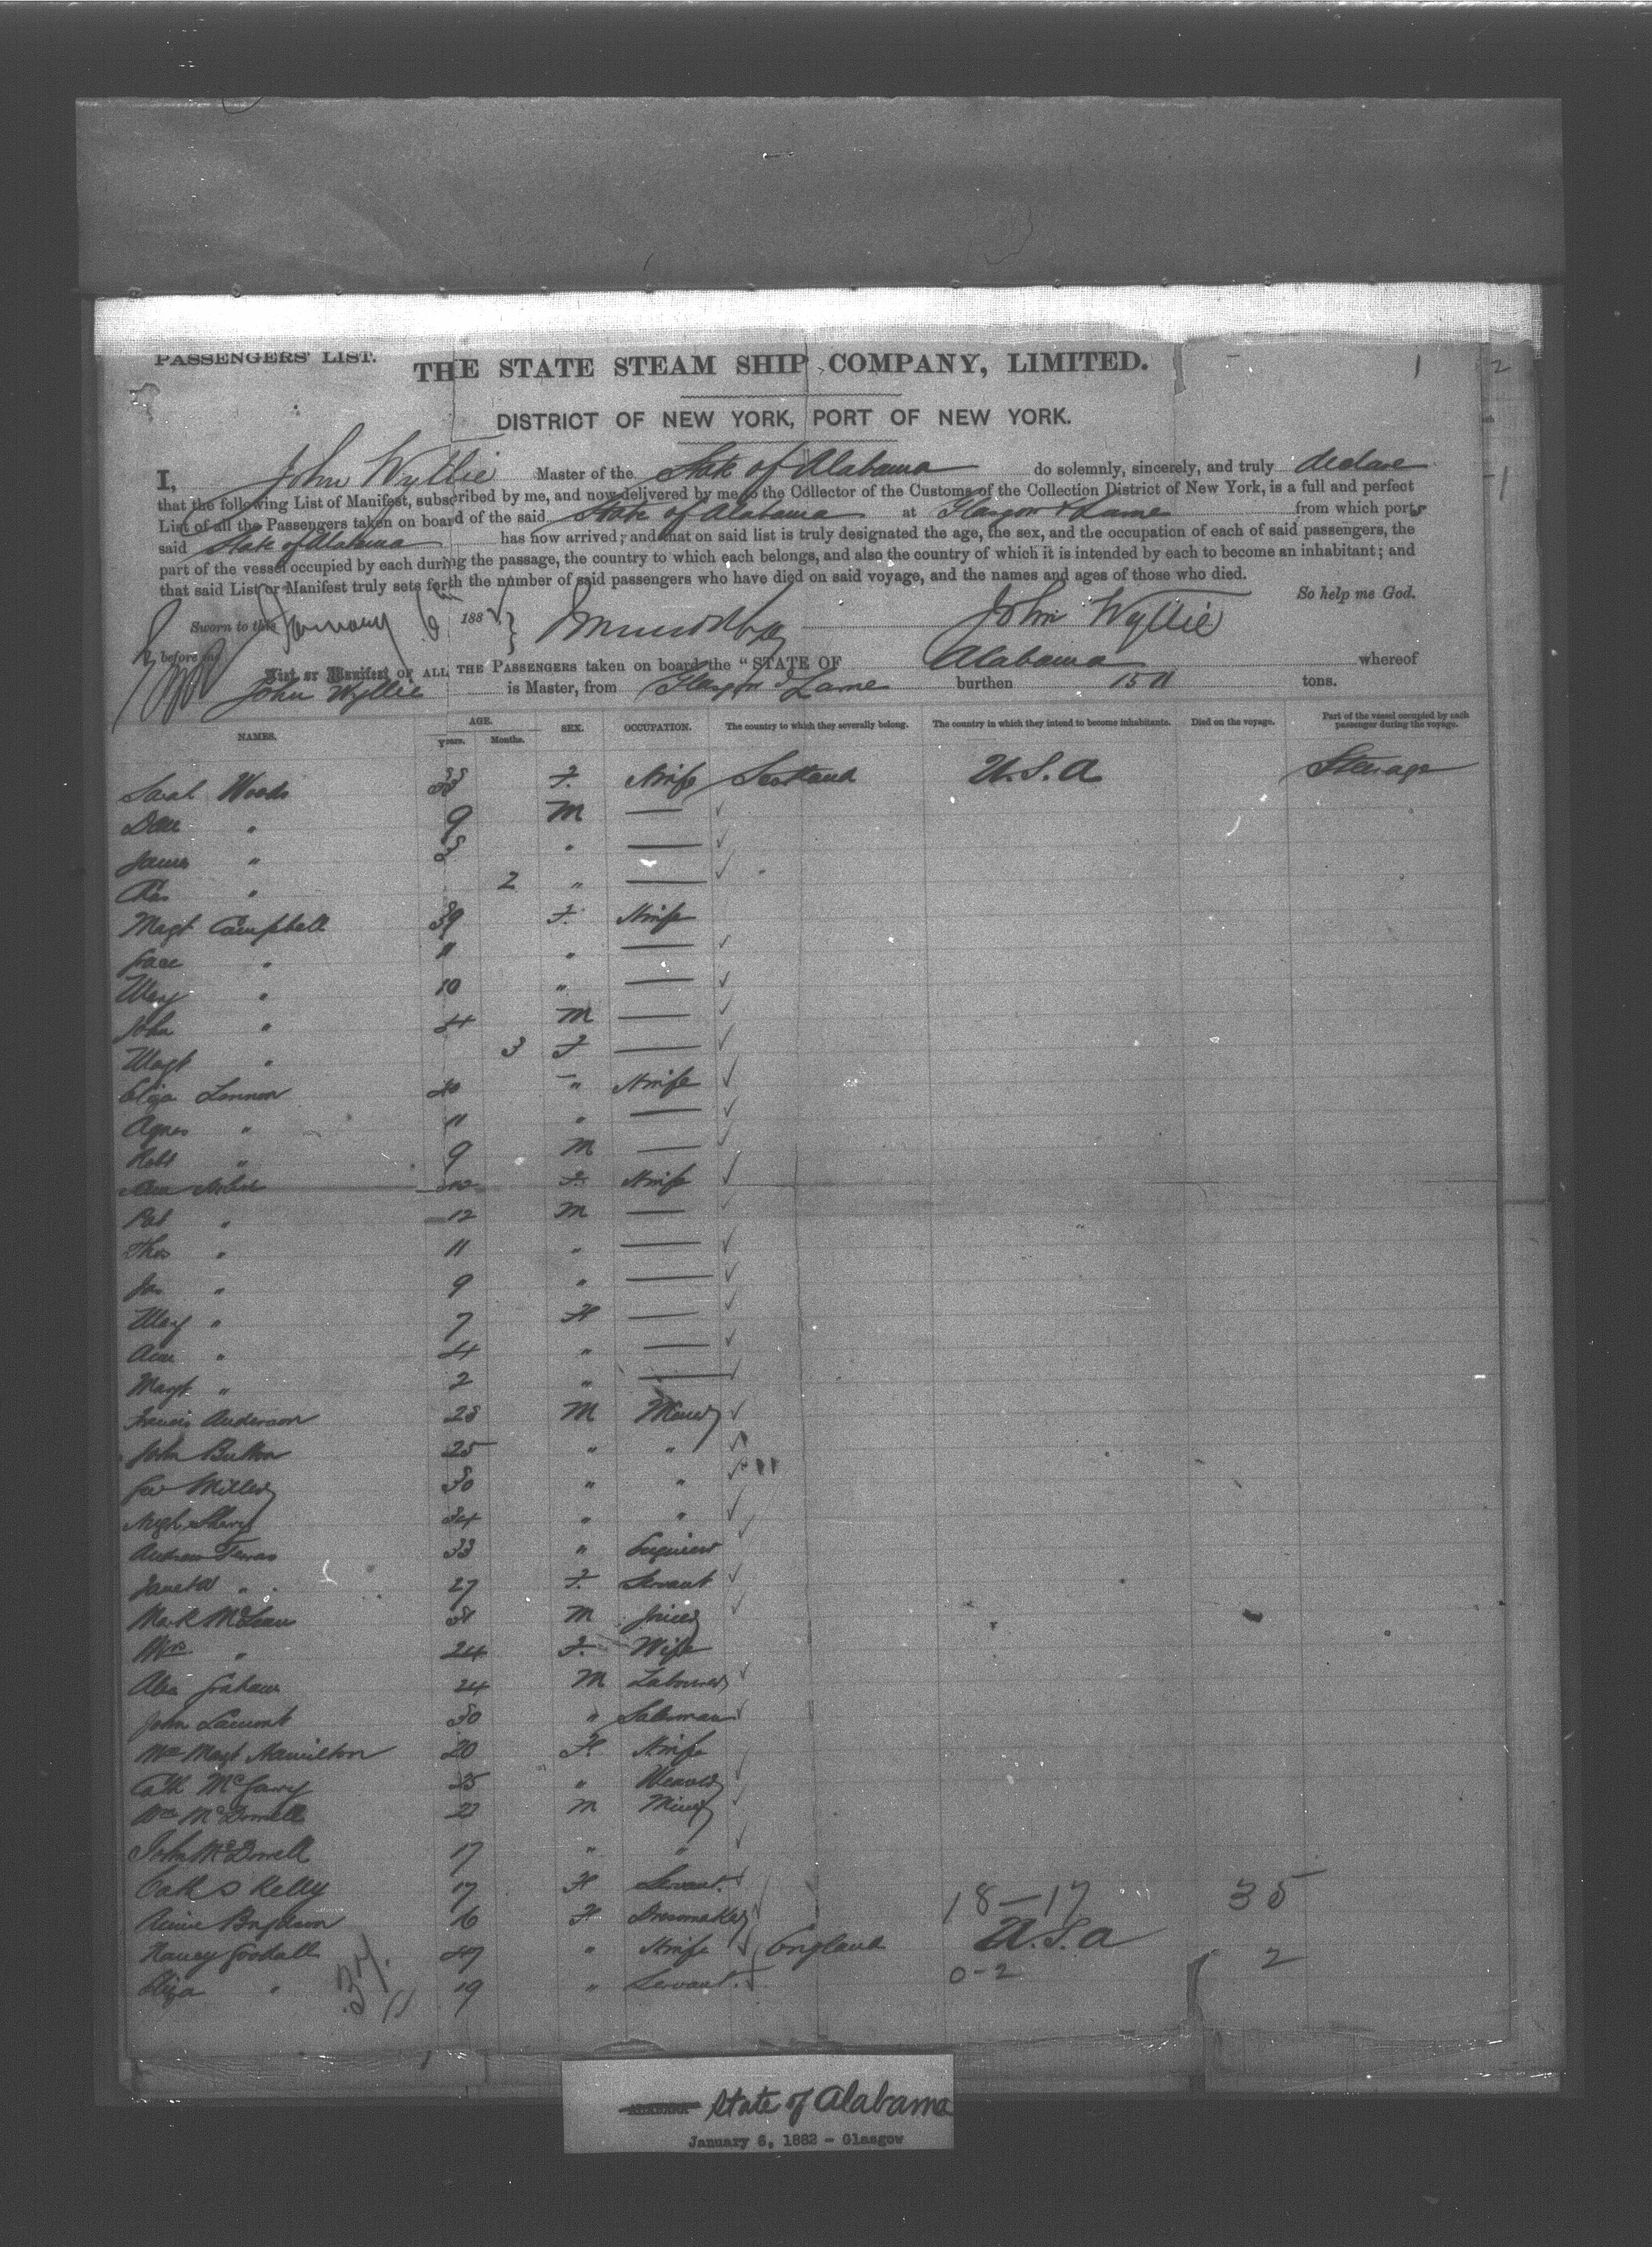 PASSENGERS' LIST.
THE STATE STEAM SHIP COMPANY, LIMITED. 1 2
DISTRICT OF NEW YORK, PORT OF NEW YORK.
I, John Wyllie Master of the State of Alabama do solemnly, sincerely, and truly declare
that the following List of Manifest, subscribed by me, and now delivered by me to the Collector of the Customs of the Collection District of New York, is a full and perfect
List of all the Passengers taken on board of the said State of Alabama at Glasgow & Larne from which ports
said State of Alabama has now arrived; and that on said list is truly designated the age, the sex, and the occupation of each of said passengers, the
part of the vessel occupied by each during the passage, the country to which each belongs, and also the country of which it is intended by each to become an inhabitant; and
that said List or Manifest truly sets forth the number of said passengers who have died on said voyage, and the names and ages of those who died.
So help me God.
Sworn to this January 6 1882 John Wyllie
before me
List or Manifest OF ALL THE PASSENGERS taken on board the "STATE OF Alabama whereof
John Wyllie is Master, from Glasgow & Larne burthen 1511 tons.
NAMES. AGE. Years. Months. SEX. OCCUPATION. The country to which they severally belong. The country in which they intend to become inhabitants. Died on the voyage. Part of the vessel occupied by each passenger during the voyage.
Sarah Woods 33 F. Wife Scotland U.S.A Steerage
" 9 M —
James " "  —
Chas " 2 " —
Magt Campbell 39 F. Wife
" 11 " —
Mary " 10 " —
John " 4 M —
Magt " 3 F —
Eliza Lennon 40 " Wife
Agnes " 11 " —
Robt " 9 M —
F. Wife
Pat " 12 M —
Thos " 11 " —
Jas " 9 " —
Mary " 7 F —
Ann " 4 " —
Magt " 2 " —
Francis Anderson 28 M Miner
John Button 25 " "
Miller 30 " "
Hugh 34 " "
Andrew 33 "
Janet " 27 F. Servant
Mark McLean M Joiner
Mrs " 24 F. Wife
Alex Graham 24 M Labourer
John Lamont 30 " Salesman
Mrs Magt Hamilton 20 F Wife
Cath McGarry 25 " Weaver
Wm McDowell M Miner
John McDowell 17 " "
Cath Kelly 17 F Servant. 18-17 35
Annie 16 F Dressmaker
Nancy Goodall 47 " Wife England U.S.A
Eliza " 19 " Servant. 0-2 2
37
State of Alabama
January 6, 1882 - Glasgow